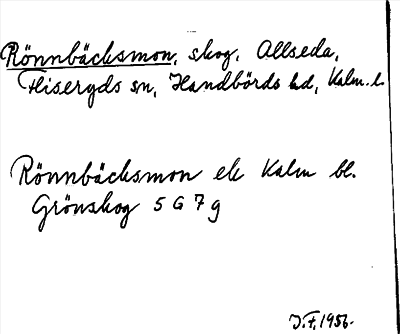 Rönnbäcksmon, skog, Allseda,
Fliseryds sn, Handbörds hd, Kalm. l.
Rönnbäcksmon ek Kalm bl.
Grönskog 5 G 7 g
J.F. 1956.